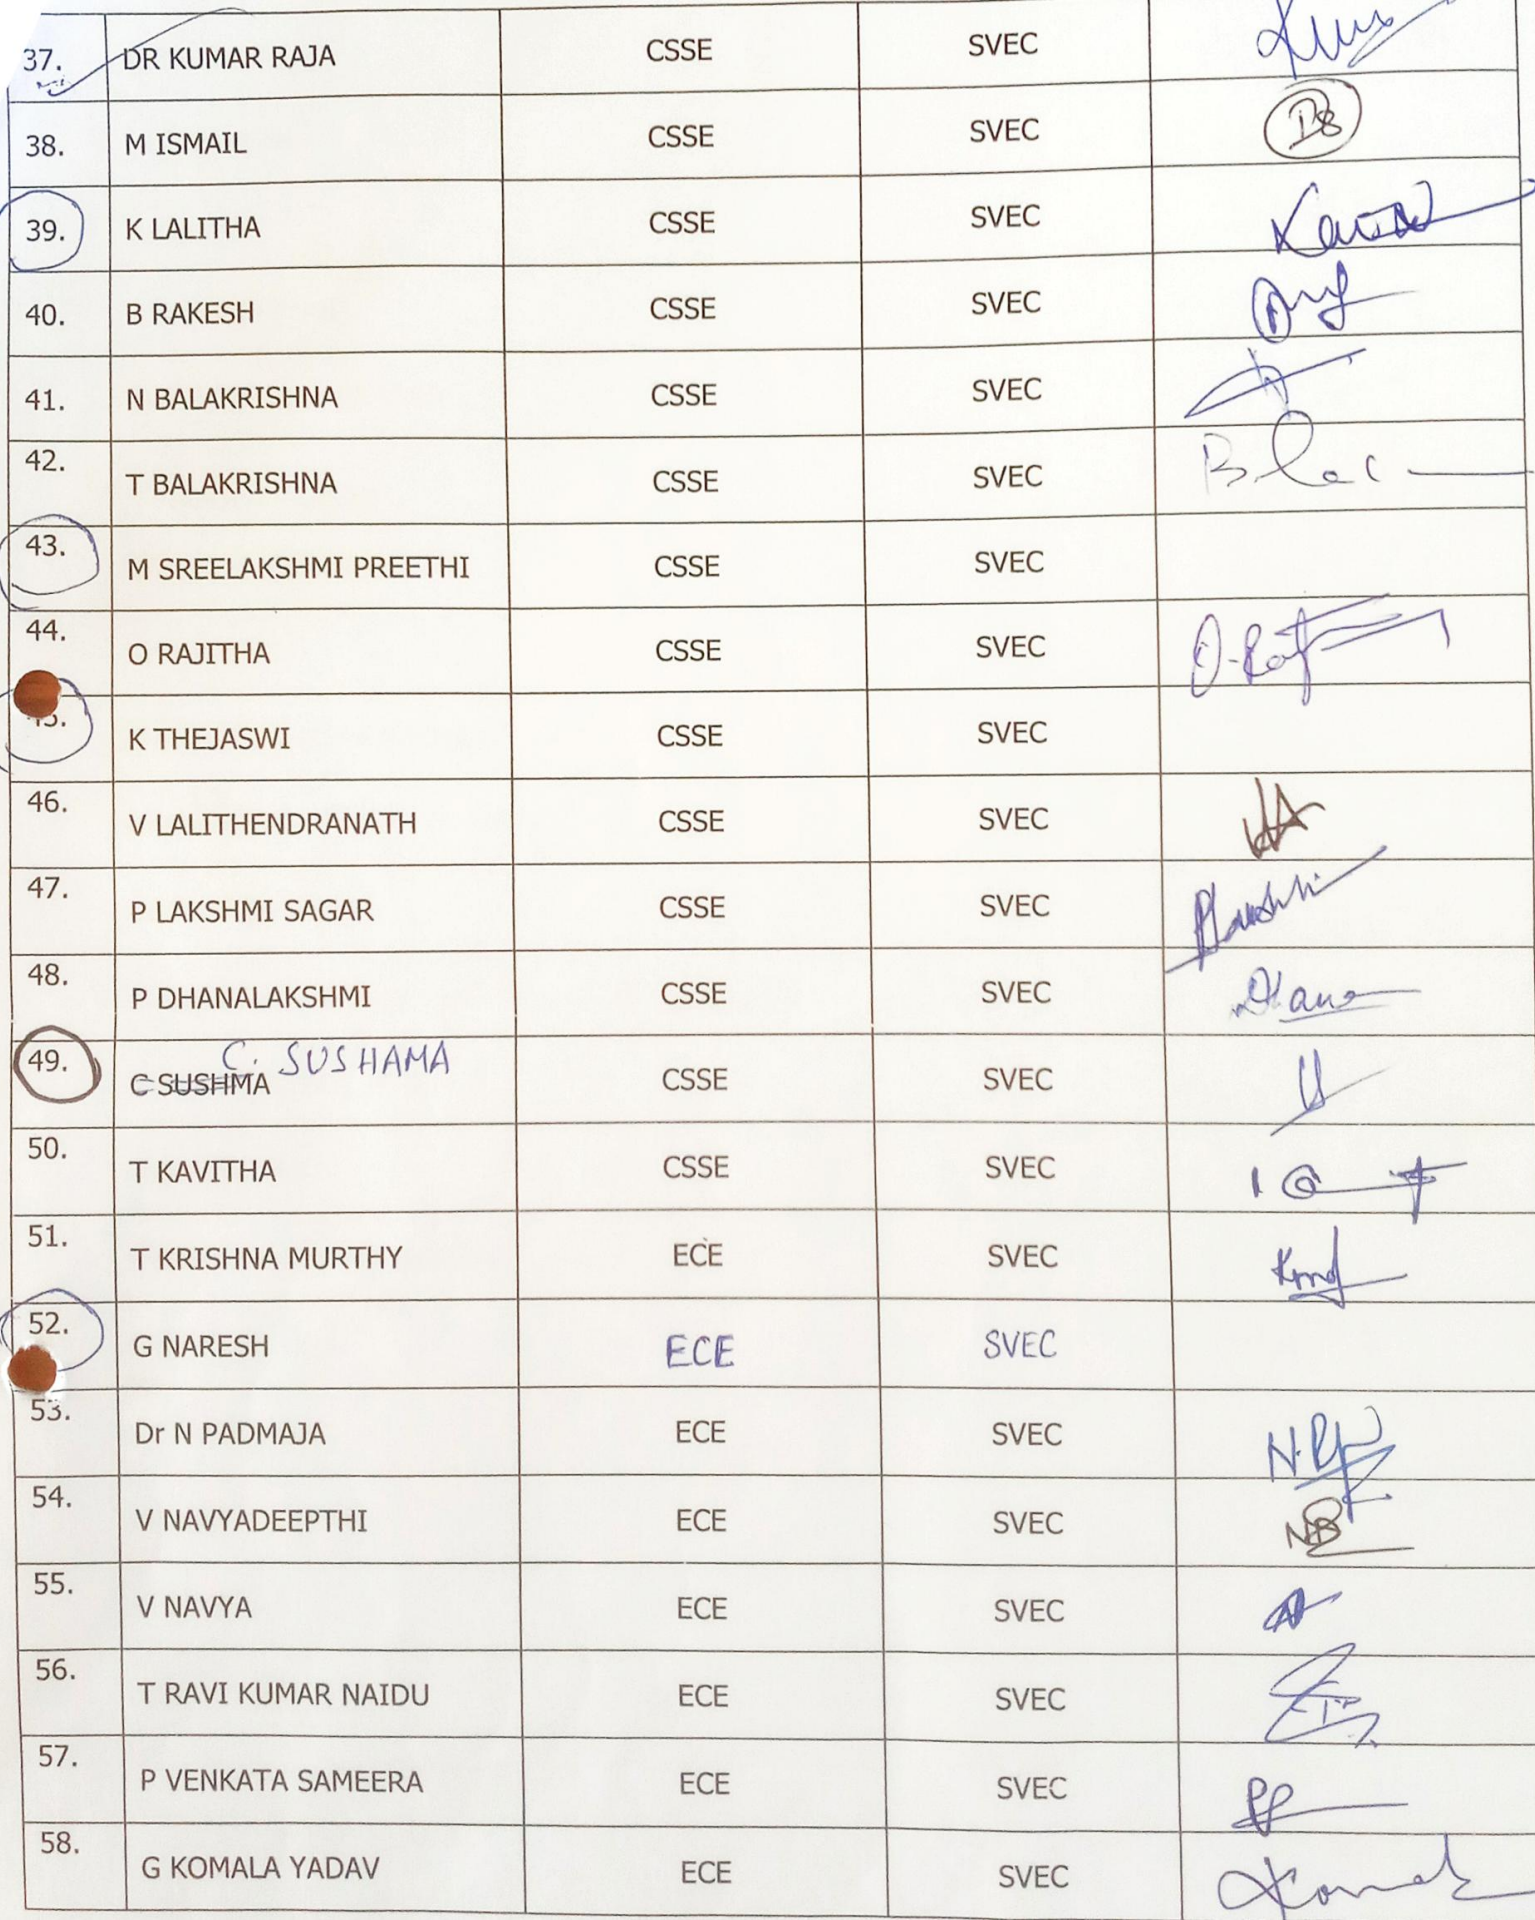 37. DR KUMAR RAJA CSSE SVEC
38. M ISMAIL CSSE SVEC
39. K LALITHA CSSE SVEC
40. B RAKESH CSSE SVEC
41. N BALAKRISHNA CSSE SVEC
42. T BALAKRISHNA CSSE SVEC
43. M SREELAKSHMI PREETHI CSSE SVEC
44. O RAJITHA CSSE SVEC O-Raj
K THEJASWI CSSE SVEC
46. V LALITHENDRANATH CSSE SVEC
47. P LAKSHMI SAGAR CSSE SVEC
48. P DHANALAKSHMI CSSE SVEC Dhana
C. SUSHAMA
49. C SUSHMA CSSE SVEC
50. T KAVITHA CSSE SVEC
51. T KRISHNA MURTHY ECE SVEC
52. G NARESH ECE SVEC
53. Dr N PADMAJA ECE SVEC
54. V NAVYADEEPTHI ECE SVEC
55. V NAVYA ECE SVEC
56. T RAVI KUMAR NAIDU ECE SVEC
57. P VENKATA SAMEERA ECE SVEC
58. G KOMALA YADAV ECE SVEC